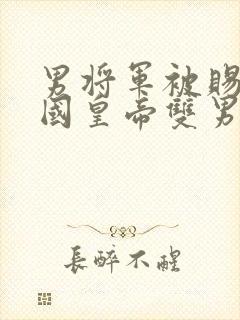 男将军被賜
國皇帝雙男
長醉不醒